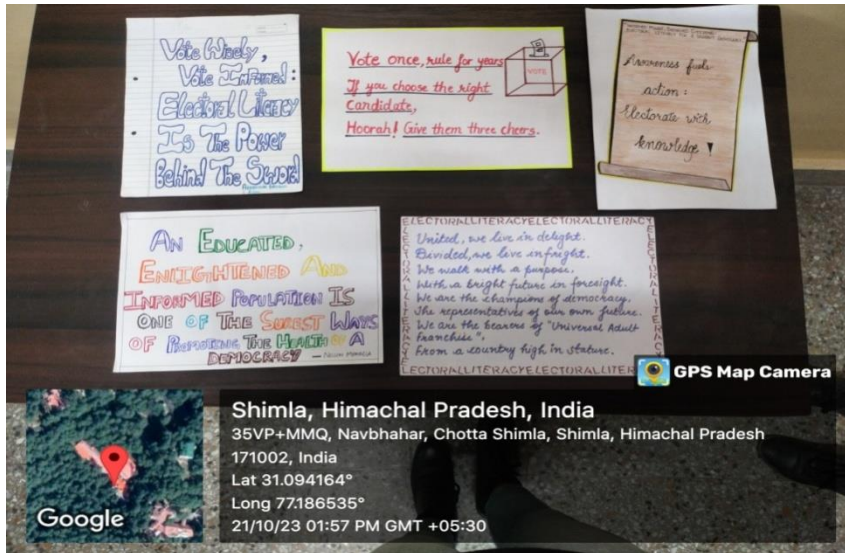 Vote Wisely,
Vote Informed:
Electoral Literacy
Is The Power
Behind The Sword
Vote once, rule for years
If you choose the right
Candidate,
Hoorah! Give them three cheers.
VOTE
Awareness fuels
action:
Electorate with
knowledge!
AN EDUCATED,
ENLIGHTENED AND
INFORMED POPULATION IS
ONE OF THE SUREST WAYS
OF PROMOTING THE HEALTH OF A
DEMOCRACY
ELECTORALLITERACYELECTORALLITERACY
United, we live in delight.
Divided, we live in fright.
We walk with a purpose.
With a bright future in foresight.
We are the champions of democracy.
The representatives of our own future.
We are the bearers of "Universal Adult
Franchise".
From a country high in stature.
LECTORALLITERACYELECTORALLITER
GPS Map Camera
Shimla, Himachal Pradesh, India
35VP+MMQ, Navbhahar, Chotta Shimla, Shimla, Himachal Pradesh
171002, India
Lat 31.094164°
Long 77.186535°
21/10/23 01:57 PM GMT +05:30
Google